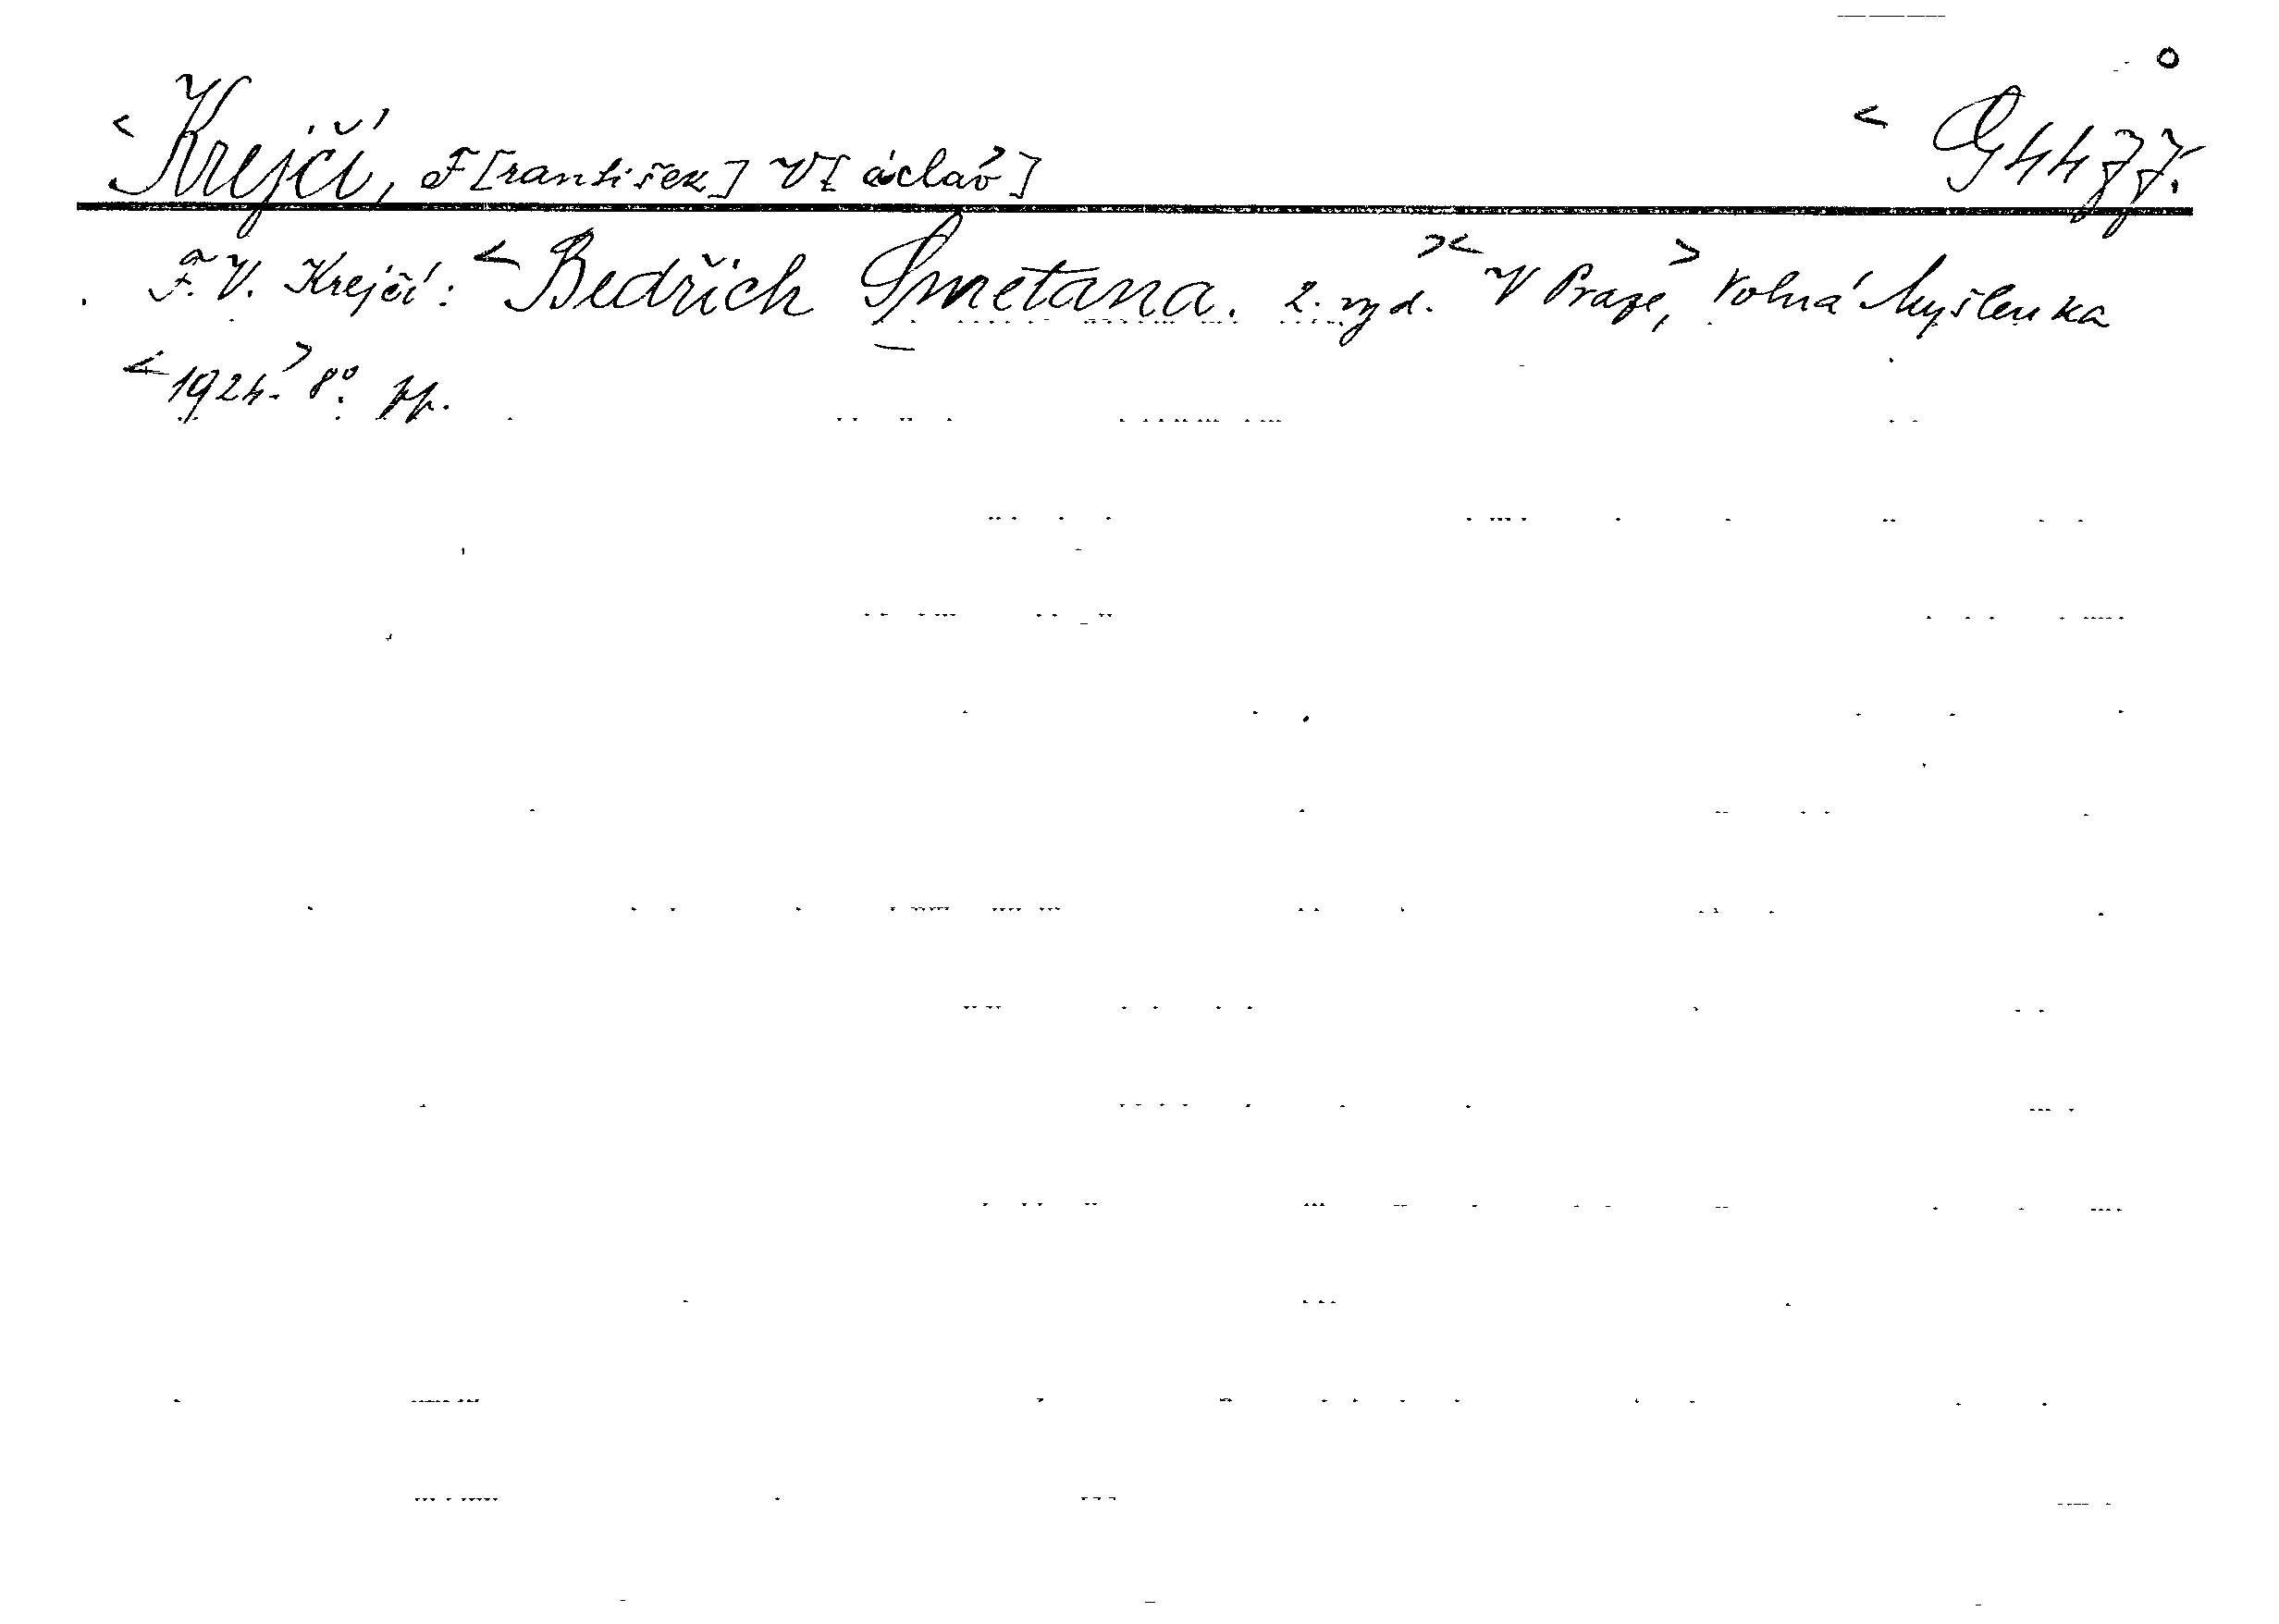 < Krejčí, F[rantišek] V[áclav] < G 4477.
F. V. Krejčí: < Bedřich Smetana. 2. vyd. >< V Praze, > Volná Myšlenka
< 1924. > 8°. pp.